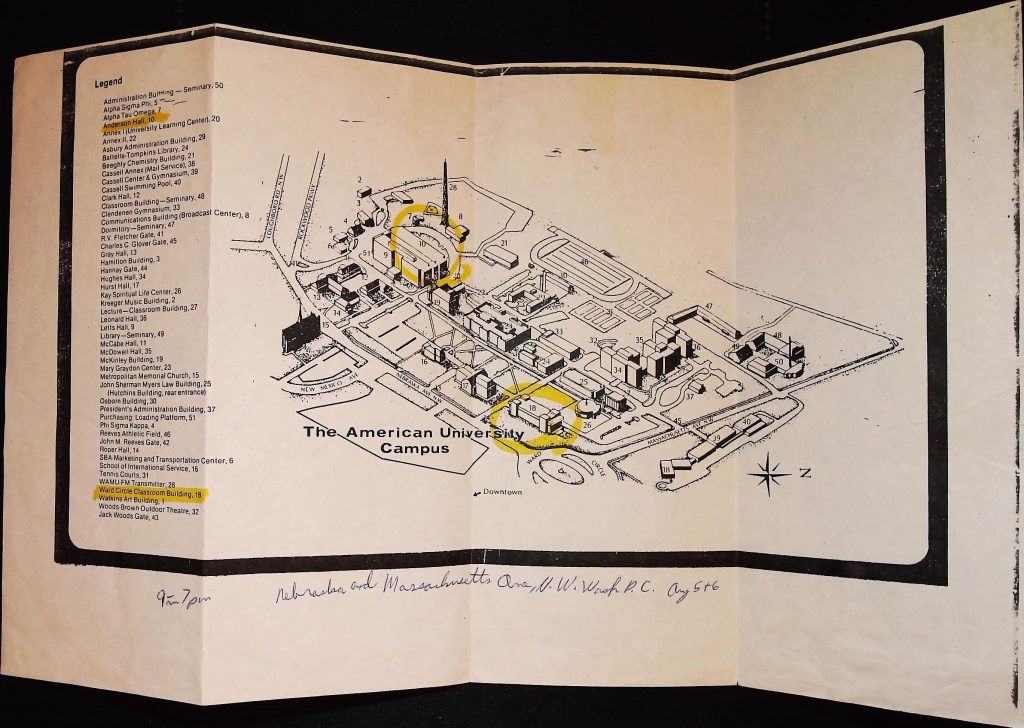 Legend
Administration Building — Seminary, 50
Alpha Sigma Phi, 5
Alpha Tau Omega, 7
Anderson Hall, 10
Annex I (University Learning Center), 20
Annex II, 22
Asbury Administration Building, 29
Battelle-Tompkins Library, 24
Beeghly Chemistry Building, 21
Cassell Annex (Mail Service), 38
Cassell Center & Gymnasium, 39
Cassell Swimming Pool, 40
Clark Hall, 12
Classroom Building—Seminary, 48
Clendenen Gymnasium, 33
Communications Building (Broadcast Center), 8
Dormitory—Seminary, 47
R.V. Fletcher Gate, 41
Charles C. Glover Gate, 45
Gray Hall, 13
Hamilton Building, 3
Hannay Gate, 44
Hughes Hall, 34
Hurst Hall, 17
Kay Spiritual Life Center, 26
Kreeger Music Building, 2
Lecture—Classroom Building, 27
Leonard Hall, 36
Letts Hall, 9
Library—Seminary, 49
McCabe Hall, 11
McDowell Hall, 35
McKinley Building, 19
Mary Graydon Center, 23
Metropolitan Memorial Church, 15
John Sherman Myers Law Building, 25
(Hutchins Building, rear entrance)
Osborn Building, 30
President's Administration Building, 37
Purchasing: Loading Platform, 51
Phi Sigma Kappa, 4
Reeves Athletic Field, 46
John M. Reeves Gate, 42
Roper Hall, 14
SBA-Marketing and Transportation Center, 6
School of International Service, 16
Tennis Courts, 31
WAMU-FM Transmitter, 28
Ward Circle Classroom Building, 18
Watkins Art Building, 1
Woods Brown Outdoor Theatre, 32
Jack Woods Gate, 43
LOUGHBORO RD. N.W.
ROCKWOOD PKWY
2
3
4
5
6
7
28
8
10
9
51
21
46
13
14
15
19
16
17
24
33
31
32
34
35
36
25
26
18
37
45
47
48
49
50
39
40
NEW MEXICO AVE
NEBRASKA AVE
MASSACHUSETTS AVE N.W.
WARD CIRCLE
The American University
Campus
Downtown
N
9am 7pm
Nebraska and Massachusetts Ave, N.W. Wash D.C. Aug 5+6